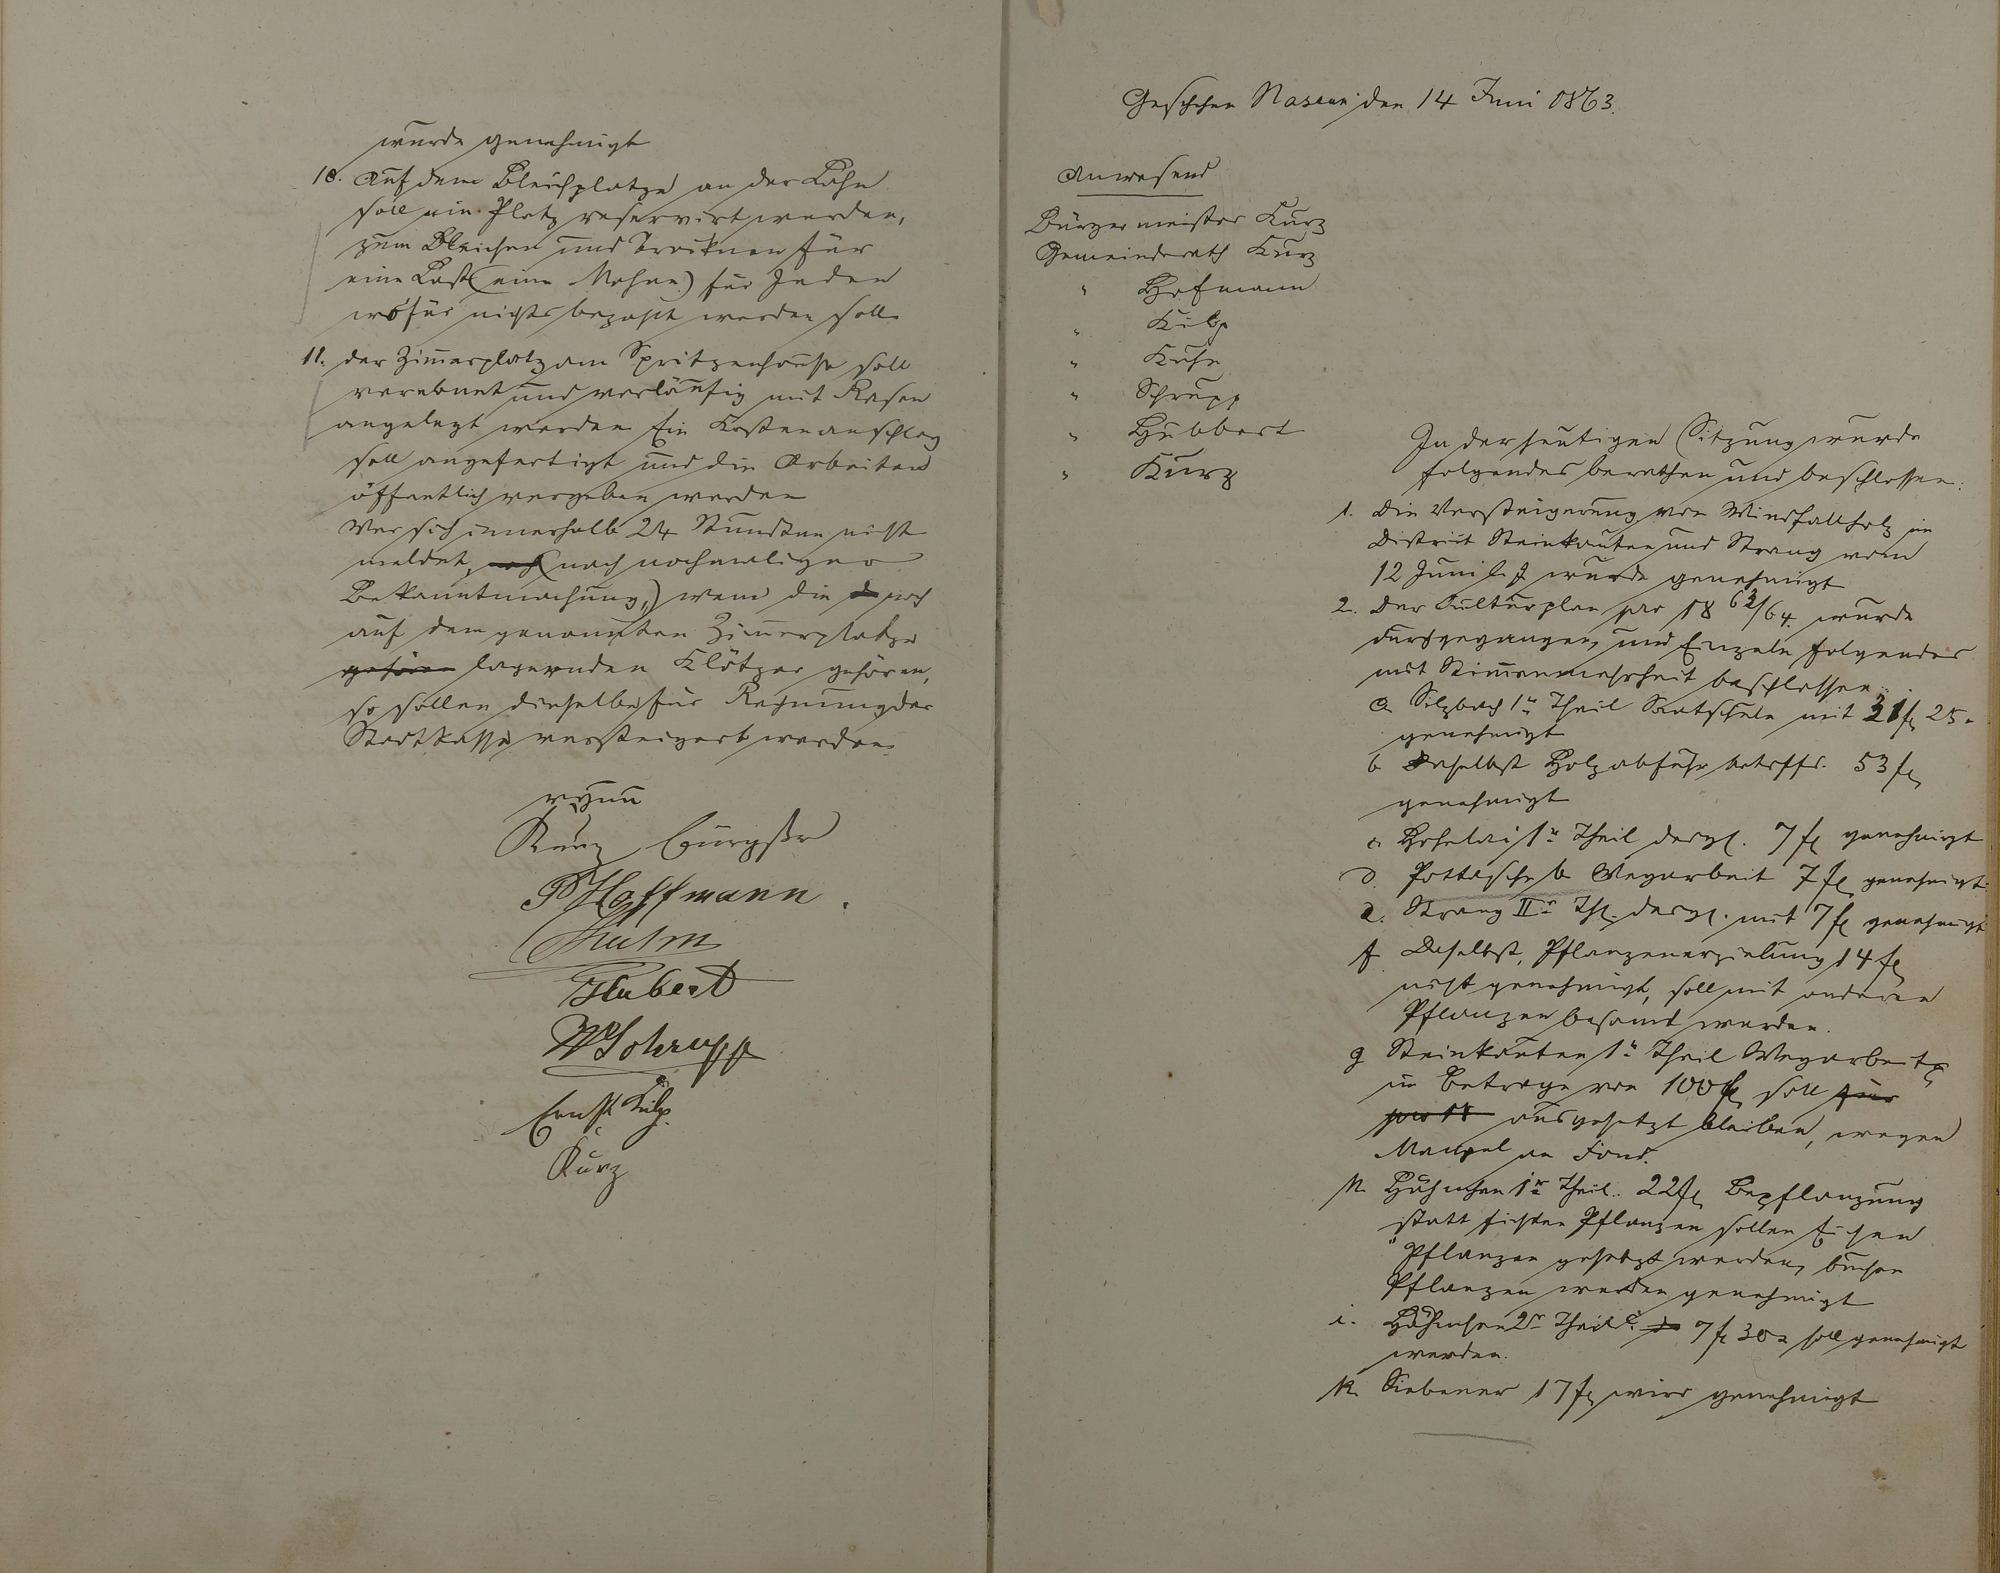 wurde genehmigt
10. Auf dem Bleichplatze an der Lahn
soll ein Platz reservirt werden,
zum Bleichen und Trocknen für
eine Last (eine Mahne) für Jeden
wofür nichts bezahlt werden soll
11. der Zimerplatz am Spritzenhause soll
verebnet und vorläufig mit Rasen
angelegt werden Ein Kostenanschlag
soll angefertigt und die Arbeiten
öffentlich vergeben werden
Wer sich innerhalb 24 Stunden nicht
meldet, (nach nochmaliger
Bekanntmachung,) wem die noch
auf dem genannten Zimerplatze
gehören lagernden Klötzer gehören,
so sollen dieselbe für Rechnung der
Stadtkasse versteigert werden.
Kurz Bürgstr
P Hoffmann.
Hubert
W Schrupp
Ernst Kilp.
Kurz
Geschehen Nassau den 14 Juni 1863.
Anwesend
Bürgermeister Kurz
Gemeinderath Kurz
" Hofmann
" Kilp
" Kuhn
" Schrupp
" Hubbert
" Kurz
In der heutigen Sitzung wurde
folgendes berathen und beschlossen:
1. Die Versteigerung von Windfallholz im
District Steinkauten und Strang vom
12 Juni l. J wurde genehmigt
2. Der Culturplan pro 18 63/64. wurde
durchgegangen, und Einzeln folgendes
mit Stimenmehrheit beschlossen.
a Silzbach 1r Theil Saatschule mit 21 fl 25
genehmigt
b Daselbst Holzabfuhr betreffs. 53 fl
genehmigt
c Hohelai 1r Theil desgl. 7 fl genehmigt
d. Pottasche b Wegarbeit 7 fl genehmigt
e. Strang IIr Thl. desgl. mit 7 fl genehmigt
f Daselbst, Pflanzenerziehung 14 fl
nicht genehmigt, soll mit anderen
Pflanzen besamt werden.
g Steinkauten 1r Theil Wegarbeit
im Betrage von 100 fl soll für
pro 18 ausgesetzt bleiben, wegen
Mangel an Fond.
h. Hähnchen 1r Theil. 22 fl Bepflanzung
statt fichten Pflanzen sollen Eichen
Pflanzen gesetzt werden, buchen
Pflanzen werden genehmigt
i. Hähnchen 2r Theil 7 fl 30 soll genehmigt
werden.
k. Siebener 17 fl wird genehmigt